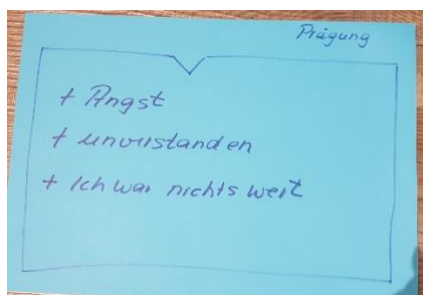 Prägung
+ Angst
+ unverstanden
+ Ich war nichts wert